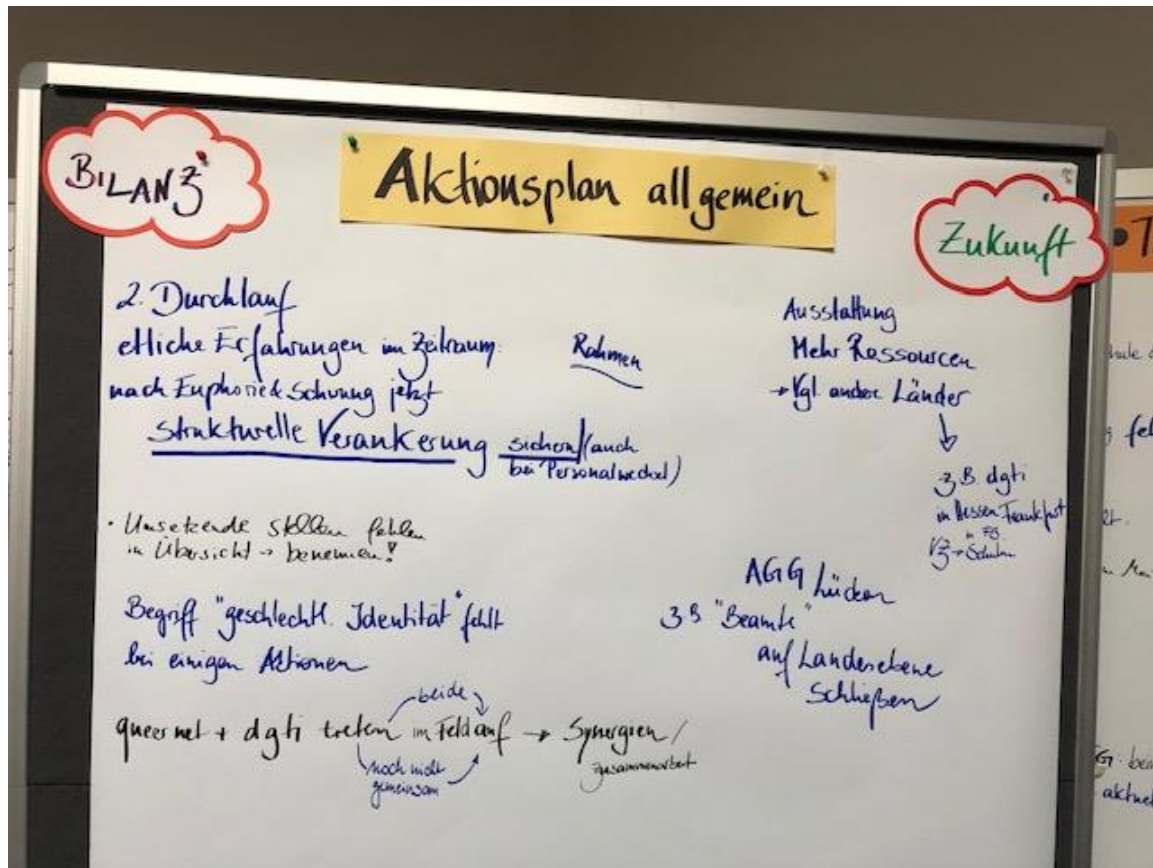 BILANZ
Aktionsplan allgemein
Zukunft
2. Durchlauf
etliche Erfahrungen im Zeitraum:
nach Euphorie & Schwung jetzt
strukturelle Verankerung sichern (auch
bei Personalwechsel)
Rahmen
· Umsetzende Stellen fehlen
in Übersicht → benennen!
Begriff "geschlechtl. Identität" fehlt
bei einigen Aktionen
queernet + dgti treten im Feld auf → Synergien /
Zusammenarbeit
beide
noch nicht
gemeinsam
Ausstattung
Mehr Ressourcen
→ Vgl. andere Länder
z B. dgti
in Hessen Frankfurt
→ Schulen
AGG Lücken
z B "Beamte"
auf Landesebene
Schließen
aktuel